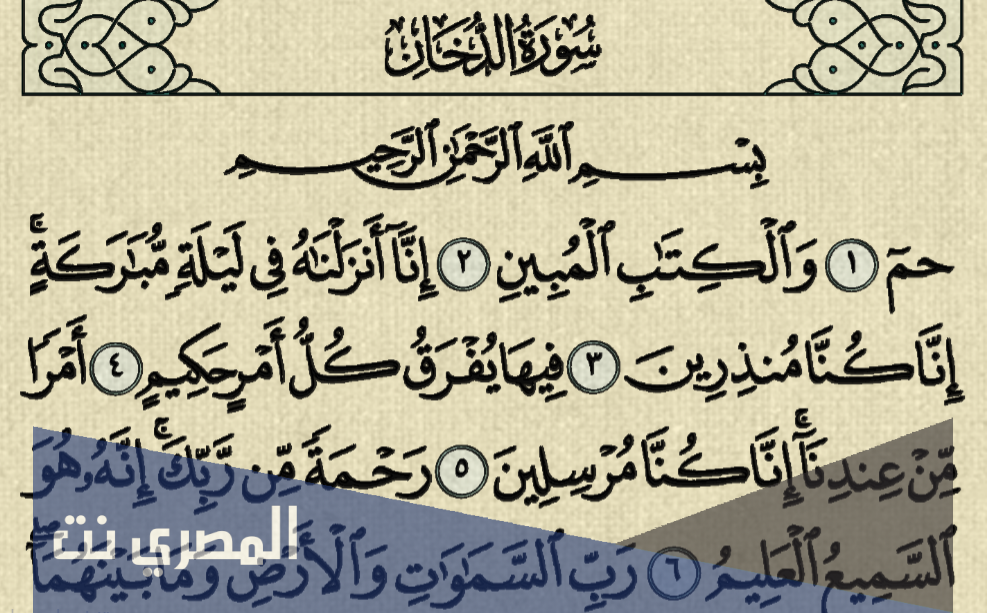 سُورَةُ الدُّخَانِ
بِسْمِ ٱللَّهِ ٱلرَّحْمَٰنِ ٱلرَّحِيمِ
حمٓ ١ وَٱلْكِتَٰبِ ٱلْمُبِينِ ٢ إِنَّآ أَنزَلْنَٰهُ فِى لَيْلَةٍ مُّبَٰرَكَةٍ ۚ
إِنَّا كُنَّا مُنذِرِينَ ٣ فِيهَا يُفْرَقُ كُلُّ أَمْرٍ حَكِيمٍ ٤ أَمْرًا
مِّنْ عِندِنَآ ۚ إِنَّا كُنَّا مُرْسِلِينَ ٥ رَحْمَةً مِّن رَّبِّكَ ۚ إِنَّهُۥ هُوَ
ٱلسَّمِيعُ ٱلْعَلِيمُ ٦ رَبِّ ٱلسَّمَٰوَٰتِ وَٱلْأَرْضِ وَمَا بَيْنَهُمَآ ۖ
المصري نت